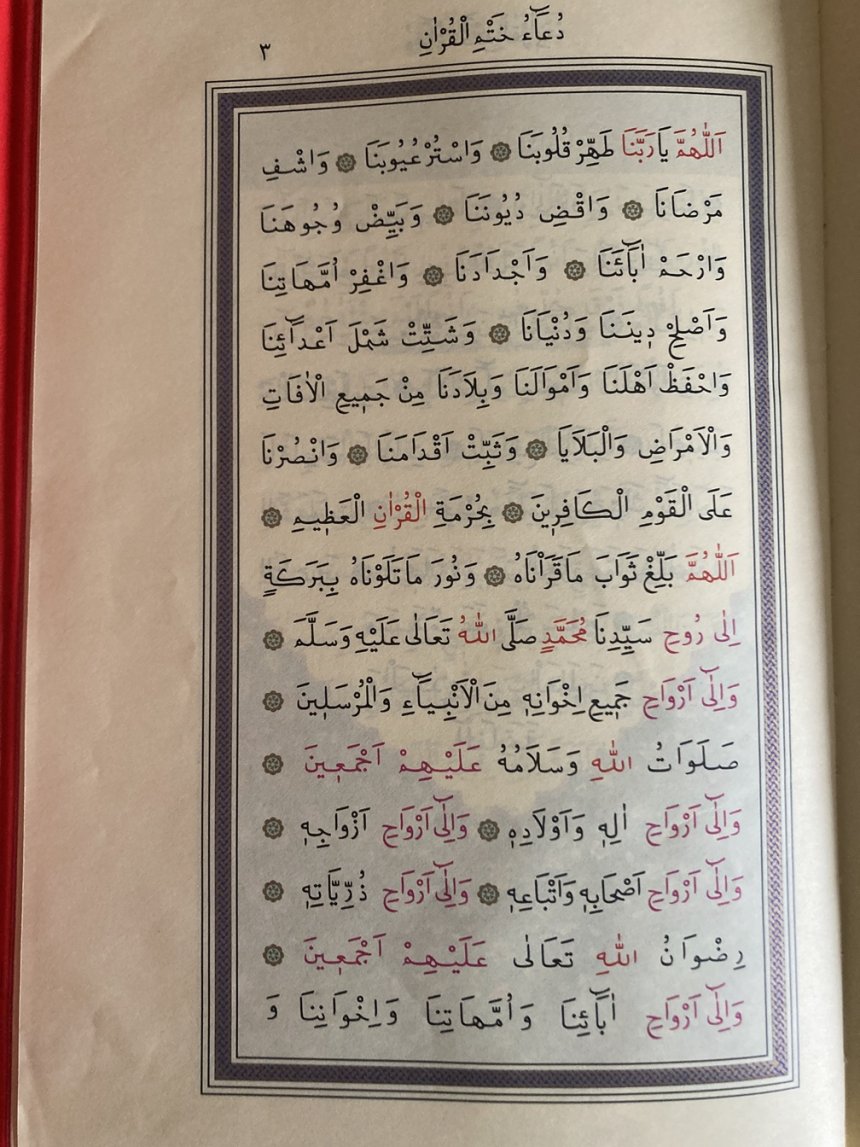 دُعَاۤءُ خَتْمِ الْقُرْاٰنِ
٣
اَللّٰهُمَّ يَا رَبَّنَا طَهِّرْ قُلُوبَنَا ۞ وَاسْتُرْ عُيُوبَنَا ۞ وَاشْفِ
مَرْضَانَا ۞ وَاقْضِ دُيُونَنَا ۞ وَبَيِّضْ وُجُوهَنَا
وَارْحَمْ اٰبَاۤئَنَا ۞ وَاَجْدَادَنَا ۞ وَاغْفِرْ اُمَّهَاتِنَا
وَاَصْلِحْ د۪ينَنَا وَدُنْيَانَا ۞ وَشَتِّتْ شَمْلَ اَعْدَاۤئِنَا
وَاحْفَظْ اَهْلَنَا وَاَمْوَالَنَا وَبِلَادَنَا مِنْ جَم۪يعِ الْاٰفَاتِ
وَالْاَمْرَاضِ وَالْبَلَايَا ۞ وَثَبِّتْ اَقْدَامَنَا ۞ وَانْصُرْنَا
عَلَى الْقَوْمِ الْكَافِر۪ينَ ۞ بِحُرْمَةِ الْقُرْاٰنِ الْعَظ۪يمِ ۞
اَللّٰهُمَّ بَلِّغْ ثَوَابَ مَا قَرَاْنَاهُ ۞ وَنُورَ مَا تَلَوْنَاهُ بِبَرَكَةٍ
اِلٰى رُوحِ سَيِّدِنَا مُحَمَّدٍ صَلَّى اللّٰهُ تَعَالٰى عَلَيْهِ وَسَلَّمَ ۞
وَاِلٰٓى اَرْوَاحِ جَم۪يعِ اِخْوَانِه۪ مِنَ الْاَنْبِيَاۤءِ وَالْمُرْسَل۪ينَ ۞
صَلَوَاتُ اللّٰهِ وَسَلَامُهُ عَلَيْهِمْ اَجْمَع۪ينَ ۞
وَاِلٰٓى اَرْوَاحِ اٰلِه۪ وَاَوْلَادِه۪ ۞ وَاِلٰٓى اَرْوَاحِ اَزْوَاجِه۪ ۞
وَاِلٰٓى اَرْوَاحِ اَصْحَابِه۪ وَاَتْبَاعِه۪ ۞ وَاِلٰٓى اَرْوَاحِ ذُرِّيَّاتِه۪ ۞
رِضْوَانُ اللّٰهِ تَعَالٰى عَلَيْهِمْ اَجْمَع۪ينَ ۞
وَاِلٰٓى اَرْوَاحِ اٰبَاۤئِنَا وَاُمَّهَاتِنَا وَاِخْوَانِنَا وَ